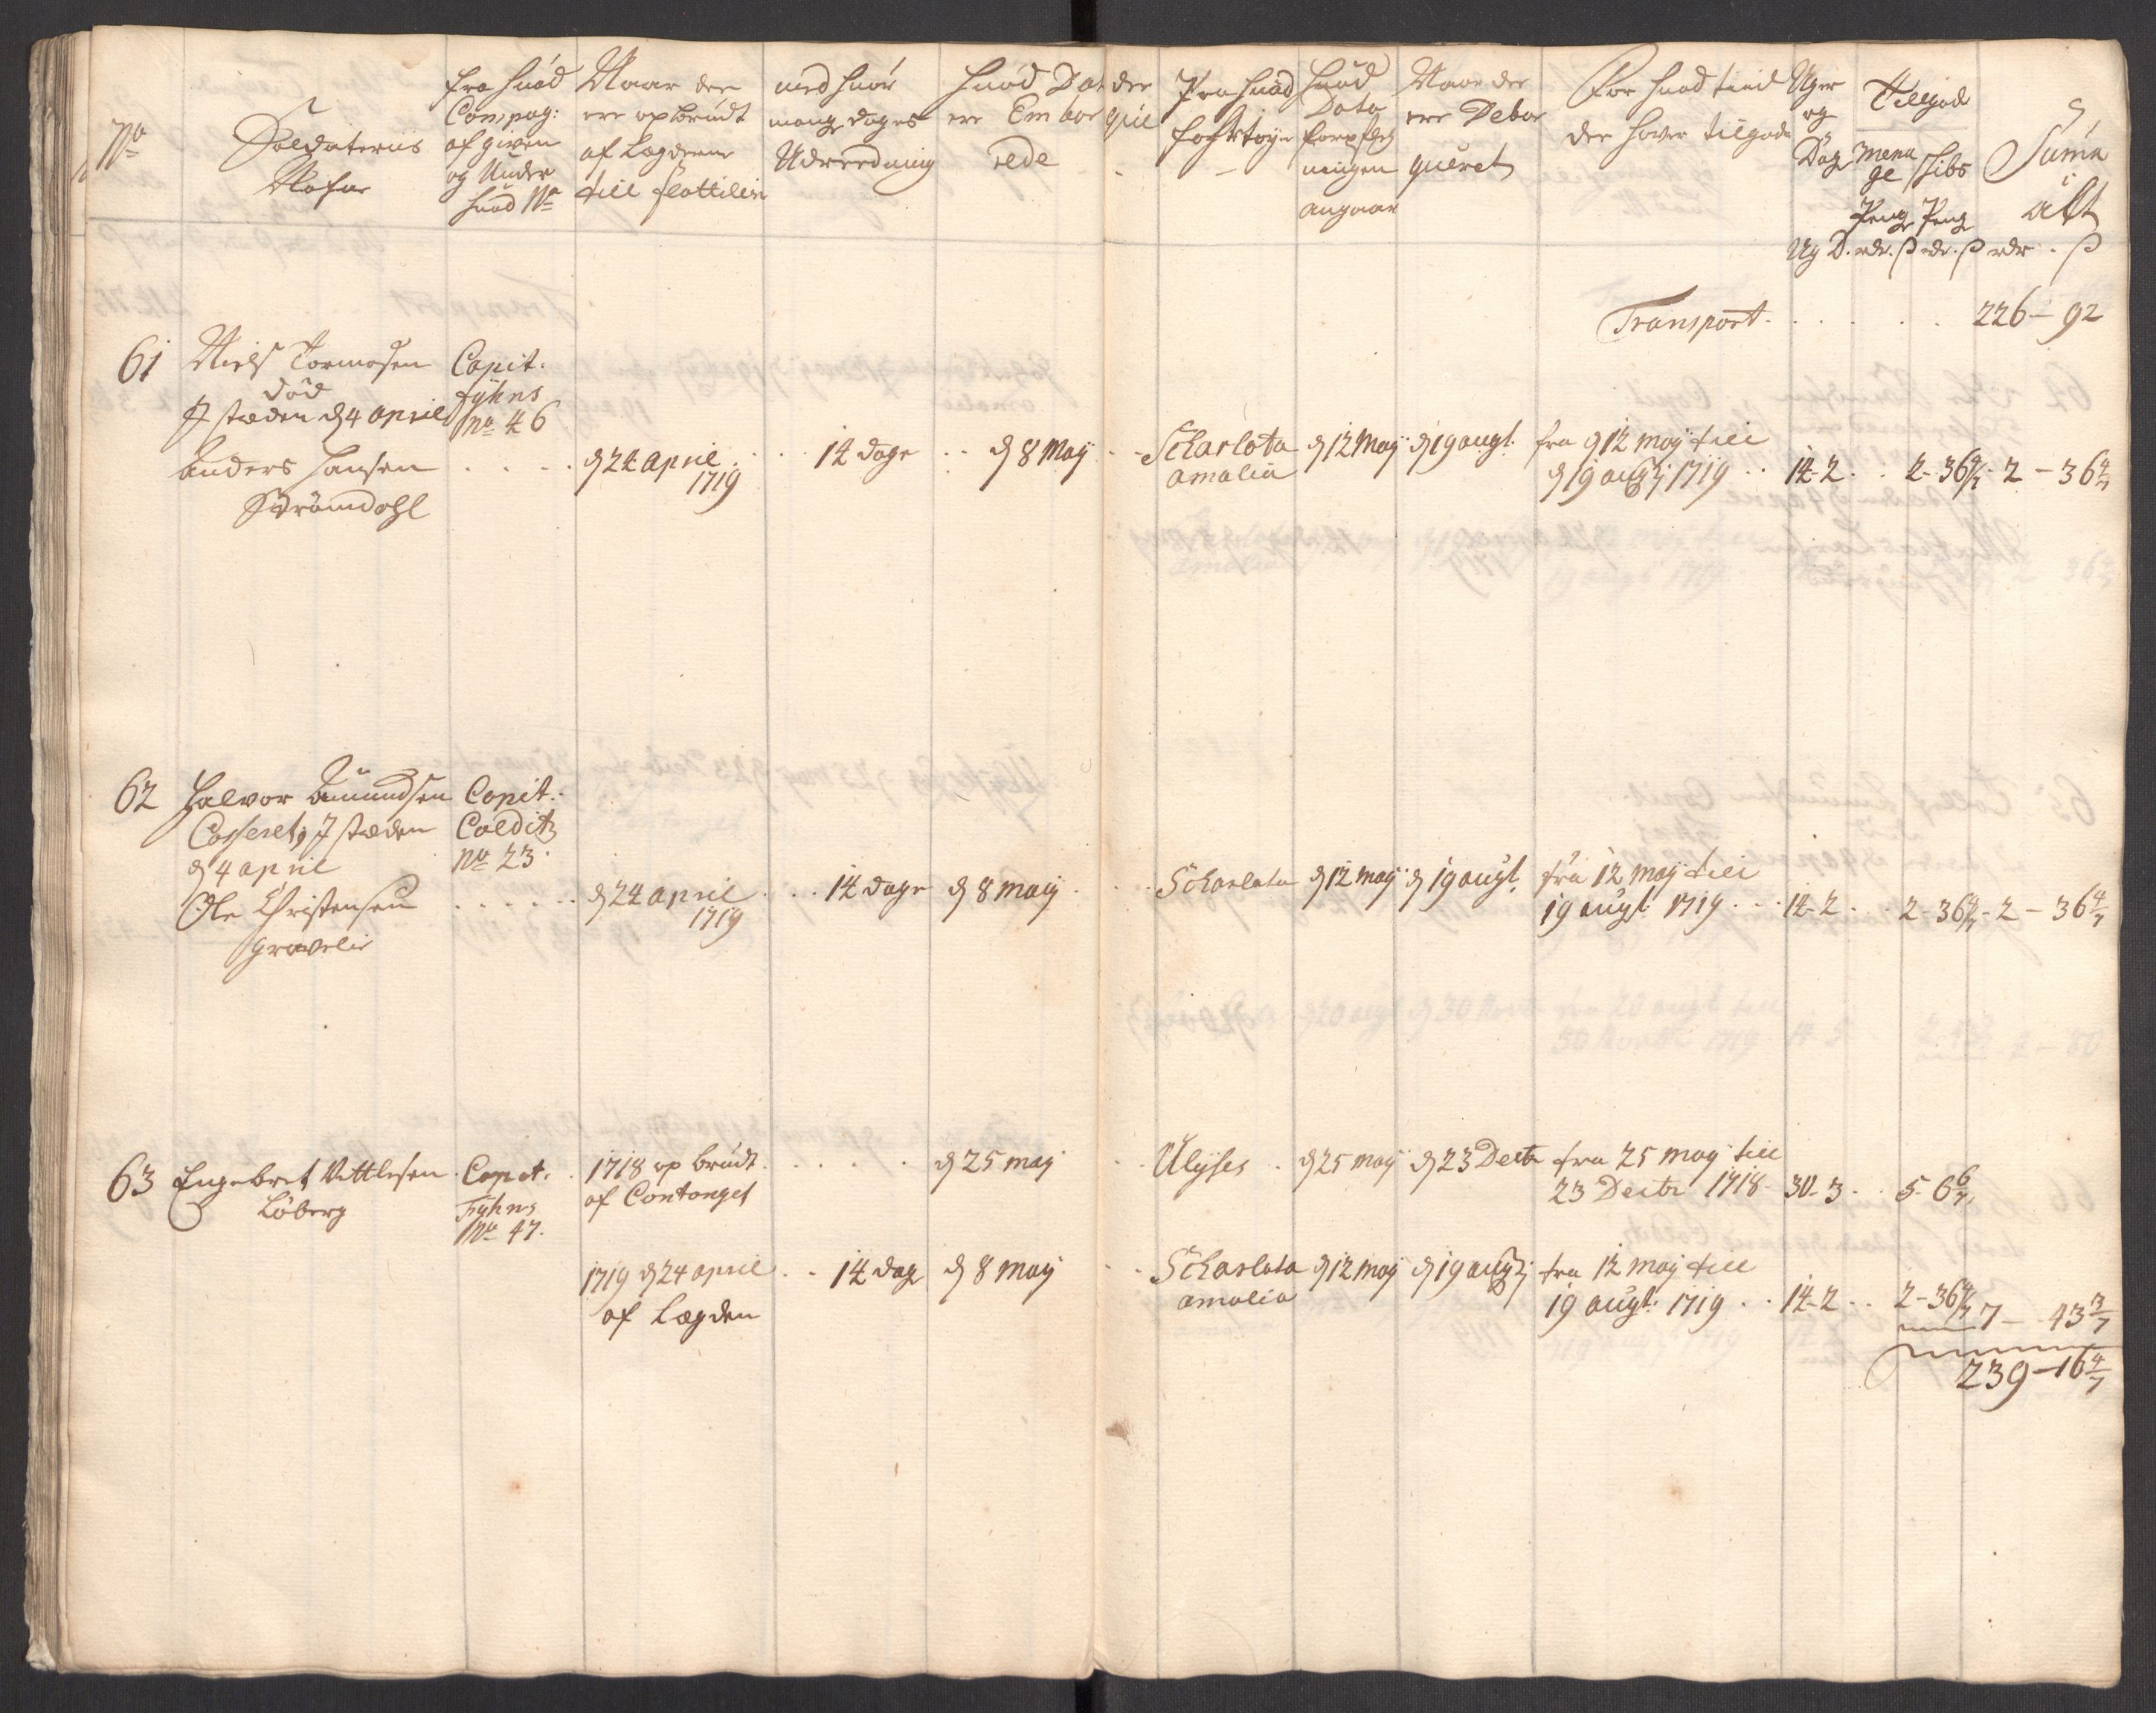 No
Soldaternis
Nafne
fra huad
Compag:
afgiven
og Under
huad No
Naar der
ere opbrudt
af Lægderne
till flottilien
med huor
mange dages
Udreedning
huad Dat der
ere Embarqúe
rede
Paa huad
fahrtøye
huad
Dato
forpfleg
ningen
angaar
Naar der
ere Debar
quéret
For huad tiid
der haver tilgode
Uger
og
Dag
Tilgod
mena
ge
Penge
Skibs
Peng
Suma
alt
Ug D. rdr. ß rdr. ß rdr. ß
Transport . . . . . . 226 - 92
61 Niels Tormosen
død
J stæden d 4 april
Anders Hansen
Strømdahl
Capit:
Fyhns
No 46
d 24 april
1719
14 dage
d 8 Maÿ
Scharlota
amalia
d 12 Maÿ
d 19 augt.
fra d 12 maÿ till
d 19 augtj 1719 . . 14-2 . . 2-36 4/7 - 2 - 36 4/7
62 Halvor Amundsen
Casseret, J stæden
d 4 april
Ole Christensen
Gravelie
Capit:
Colditz
No 23
d 24 april
1719
14 dage
d 8 maÿ
Scharlota
d 12 maÿ
d 19 augt.
fra 12 maÿ till
19 augt 1719 . . . 14-2 . . 2-36 4/7 - 2 - 36 4/7
63 Engebret Nittlesen
Løberg
Capit.
Fyhns
No 47.
1718 op brudt
af Contonget
d 25 maÿ
Ulÿses
d 25 maÿ
d 23 Decbr
fra 25 maÿ till
23 Decbr 1718 - 30-3 . . 5-6 6/7
1719 d 24 april
af Lægden
14 dag
d 8 maÿ
Scharlota
amalia
d 12 maÿ
d 19 augtj
fra 12 maÿ till
19 augt: 1719 . . 14-2 . . 2-36 4/7 7 - 43 3/7
239 - 16 4/7